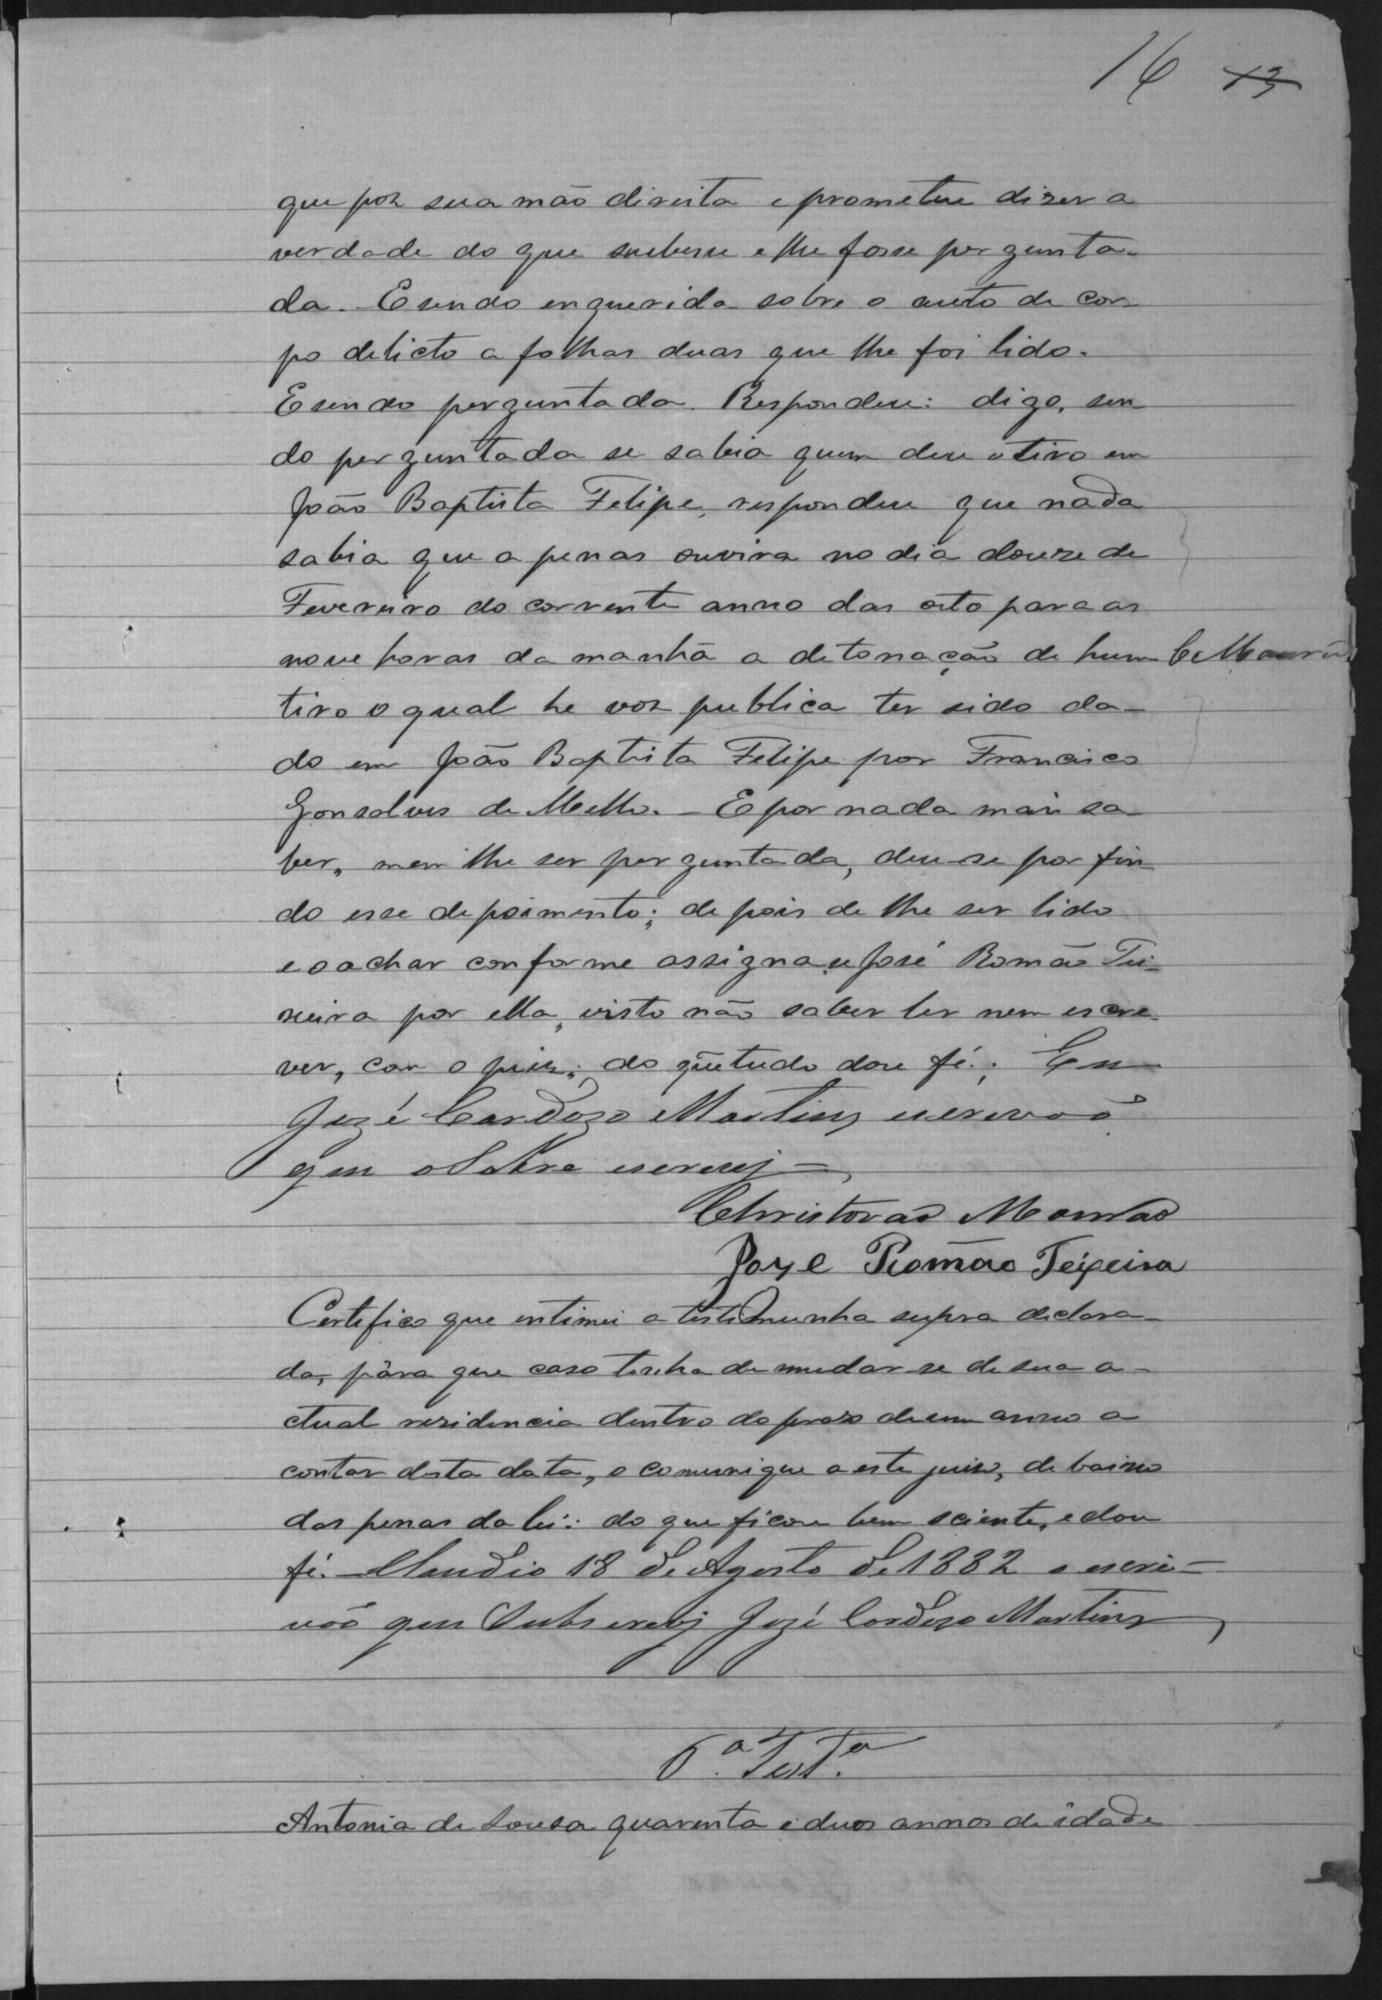 16 13
que poz sua mão direita e prometeu dizer a
verdade do que soubesse e lhe fosse pergunta-
da. - E sendo enquerida sobre o auto de cor-
po delicto a folhas duas que lhe foi lido.
E sendo perguntada. Respondeu: digo, sen
do perguntada se sabia quem deu o tiro em
João Baptista Felipe, respondeu que nada
sabia que apenas ouvira no dia douze de
Fevereiro do corrente anno das oito para as
nove horas da manhã a detonação de hum CMourão
tiro o qual he voz publica ter sido da-
do em João Baptista Felipe por Francisco
Gonsalves de Mello. - E por nada mais sa-
ber, nem lhe ser perguntada, deu-se por fin
do esse depoimento; depois de lhe ser lido
e o achar conforme assigna José Romão Tei-
xeira por ella, visto não saber ler nem escre-
ver, com o juiz; do q̃ tudo dou fé.; Eu
Jozé Cardozo Martins escrivaõ
que o Sobre escrevj
Christovaõ Mourão
Joze Romão Teixeira
Certifico que intimei a testemunha supra declara-
da, para que caso tenha de mudar-se de sua a-
ctual residencia dentro do praso de um anno a
contar desta data, o comunique a este juiso, debaixo
das penas da lei: do que ficou bem sciente, e dou
fé. - Claudio 18 de Agosto de 1882 o escri-
vaõ que Subscrevj Jozé Cardozo Martins
6.ª Test.ª
Antonia de Sousa quarenta e duos annos de idade